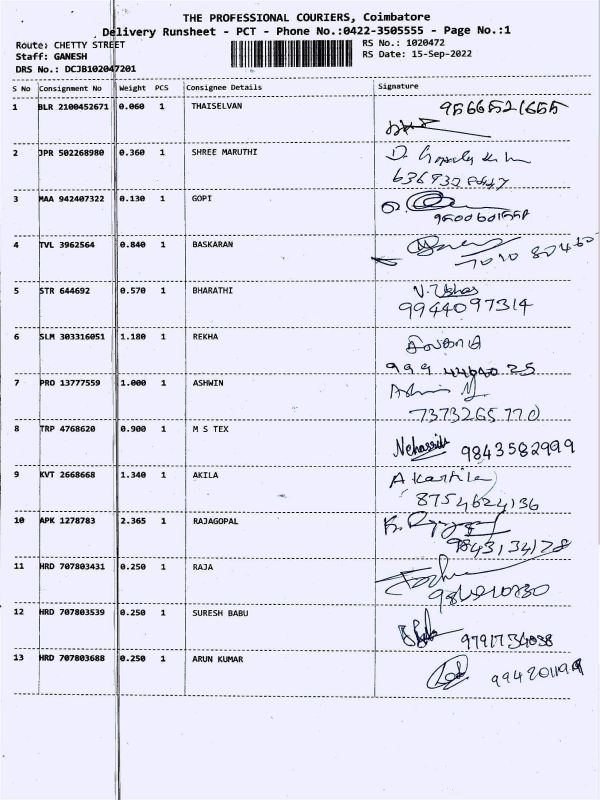 THE PROFESSIONAL COURIERS, Coimbatore
Delivery Runsheet - PCT - Phone No.:0422-3505555 - Page No.:1
Route: CHETTY STREET RS No.: 1020472
Staff: GANESH RS Date: 15-Sep-2022
DRS No.: DCJB102047201
S No Consignment No Weight PCS Consignee Details Signature
1 BLR 2100452671 0.060 1 THAISELVAN 9566521655
2 JPR 502268980 0.360 1 SHREE MARUTHI
3 MAA 942407322 0.130 1 GOPI
4 TVL 3962564 0.840 1 BASKARAN
5 STR 644692 0.570 1 BHARATHI
9944097314
6 SLM 303316051 1.180 1 REKHA
7 PRO 13777559 1.000 1 ASHWIN
7373265770
8 TRP 4768620 0.900 1 M S TEX
9843582999
9 KVT 2668668 1.340 1 AKILA
8754624136
10 APK 1278783 2.365 1 RAJAGOPAL
9843134178
11 HRD 707803431 0.250 1 RAJA
12 HRD 707803539 0.250 1 SURESH BABU
9791734038
13 HRD 707803688 0.250 1 ARUN KUMAR